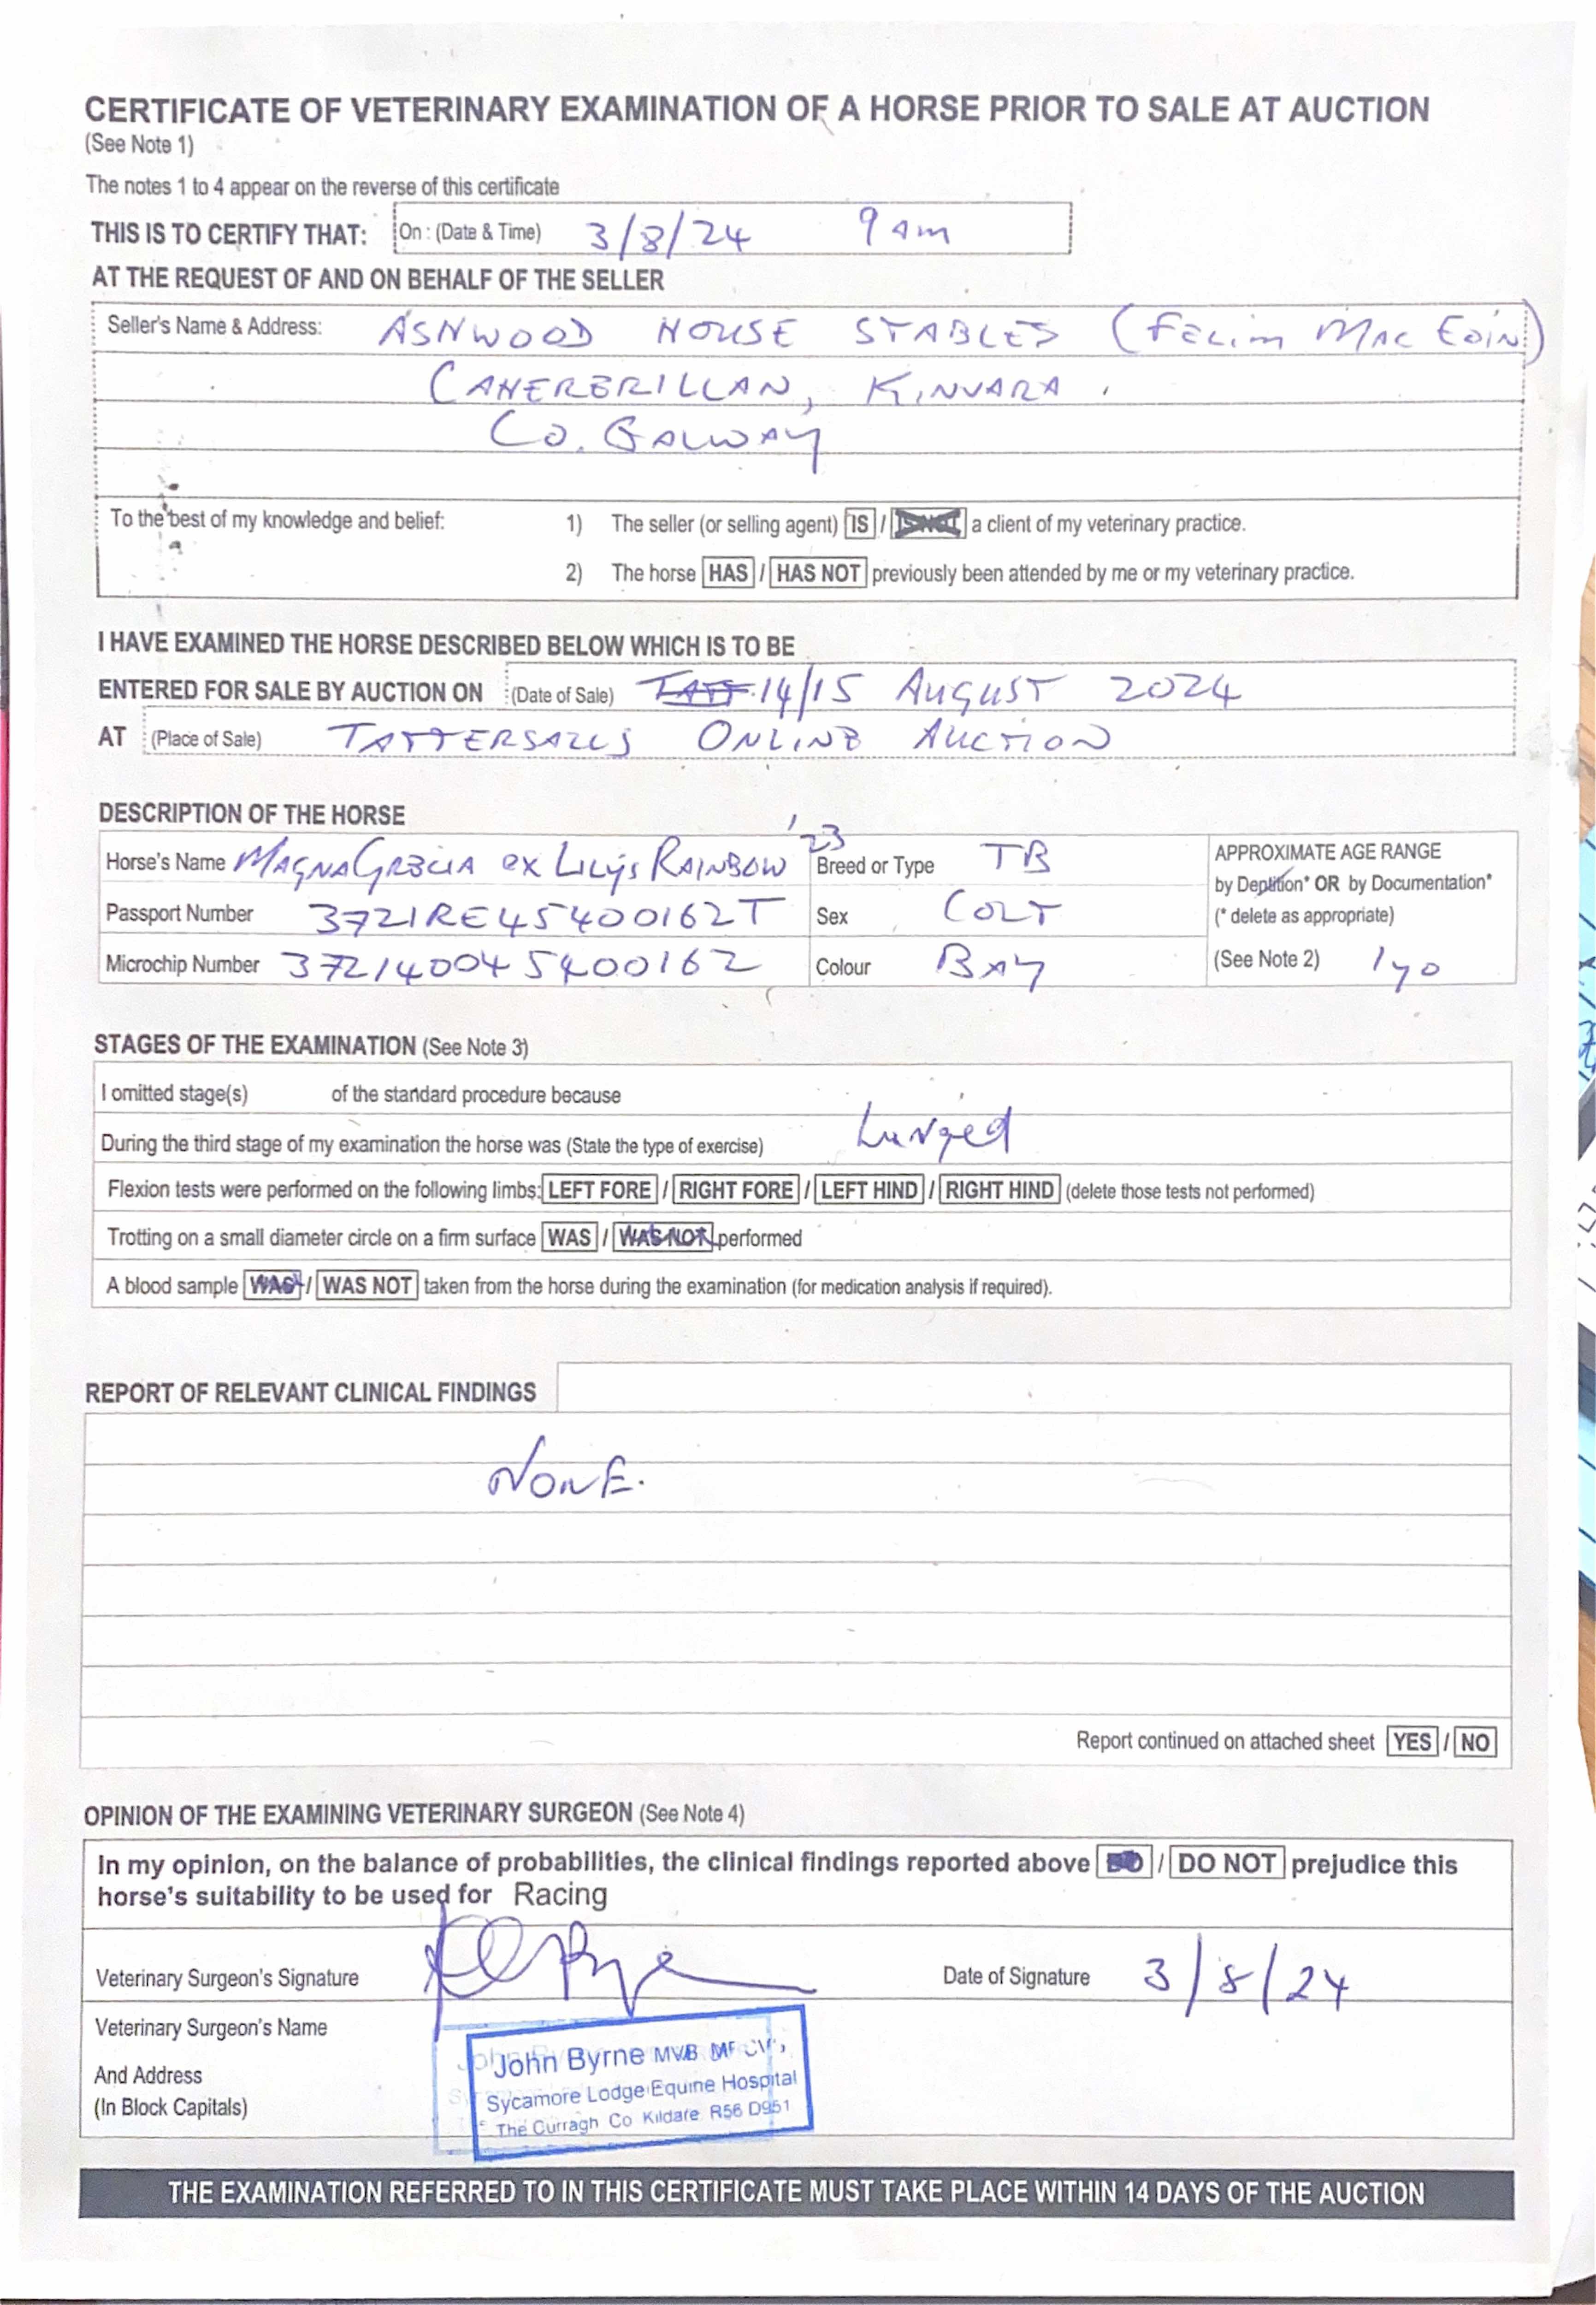 CERTIFICATE OF VETERINARY EXAMINATION OF A HORSE PRIOR TO SALE AT AUCTION
(See Note 1)
The notes 1 to 4 appear on the reverse of this certificate
THIS IS TO CERTIFY THAT: On : (Date & Time) 3/8/24 9 am
AT THE REQUEST OF AND ON BEHALF OF THE SELLER
Seller's Name & Address: ASHWOOD HOUSE STABLES (FELIM MAC EOIN)
CAHERBRILLAN, KINVARA.
CO. GALWAY
To the best of my knowledge and belief: 1) The seller (or selling agent) IS / IS NOT a client of my veterinary practice.
2) The horse HAS / HAS NOT previously been attended by me or my veterinary practice.
I HAVE EXAMINED THE HORSE DESCRIBED BELOW WHICH IS TO BE
ENTERED FOR SALE BY AUCTION ON (Date of Sale) TATT 14/15 AUGUST 2024
AT (Place of Sale) TATTERSALLS ONLINE AUCTION
DESCRIPTION OF THE HORSE
Horse's Name MAGNA GRECIA ex LILY'S RAINBOW '23 Breed or Type TB APPROXIMATE AGE RANGE
by Deptition* OR by Documentation*
Passport Number 372IRE45400162T Sex COLT (* delete as appropriate)
Microchip Number 372140045400162 Colour BAY (See Note 2) 1yo
STAGES OF THE EXAMINATION (See Note 3)
I omitted stage(s) of the standard procedure because
During the third stage of my examination the horse was (State the type of exercise) Lunged
Flexion tests were performed on the following limbs: LEFT FORE / RIGHT FORE / LEFT HIND / RIGHT HIND (delete those tests not performed)
Trotting on a small diameter circle on a firm surface WAS / WAS NOT performed
A blood sample WAS / WAS NOT taken from the horse during the examination (for medication analysis if required).
REPORT OF RELEVANT CLINICAL FINDINGS
NONE.
Report continued on attached sheet YES / NO
OPINION OF THE EXAMINING VETERINARY SURGEON (See Note 4)
In my opinion, on the balance of probabilities, the clinical findings reported above DO / DO NOT prejudice this
horse's suitability to be used for Racing
Veterinary Surgeon's Signature Date of Signature 3/8/24
Veterinary Surgeon's Name
And Address
(In Block Capitals)
John Byrne MVB
Sycamore Lodge Equine Hospital
The Curragh Co Kildare R56 D951
THE EXAMINATION REFERRED TO IN THIS CERTIFICATE MUST TAKE PLACE WITHIN 14 DAYS OF THE AUCTION